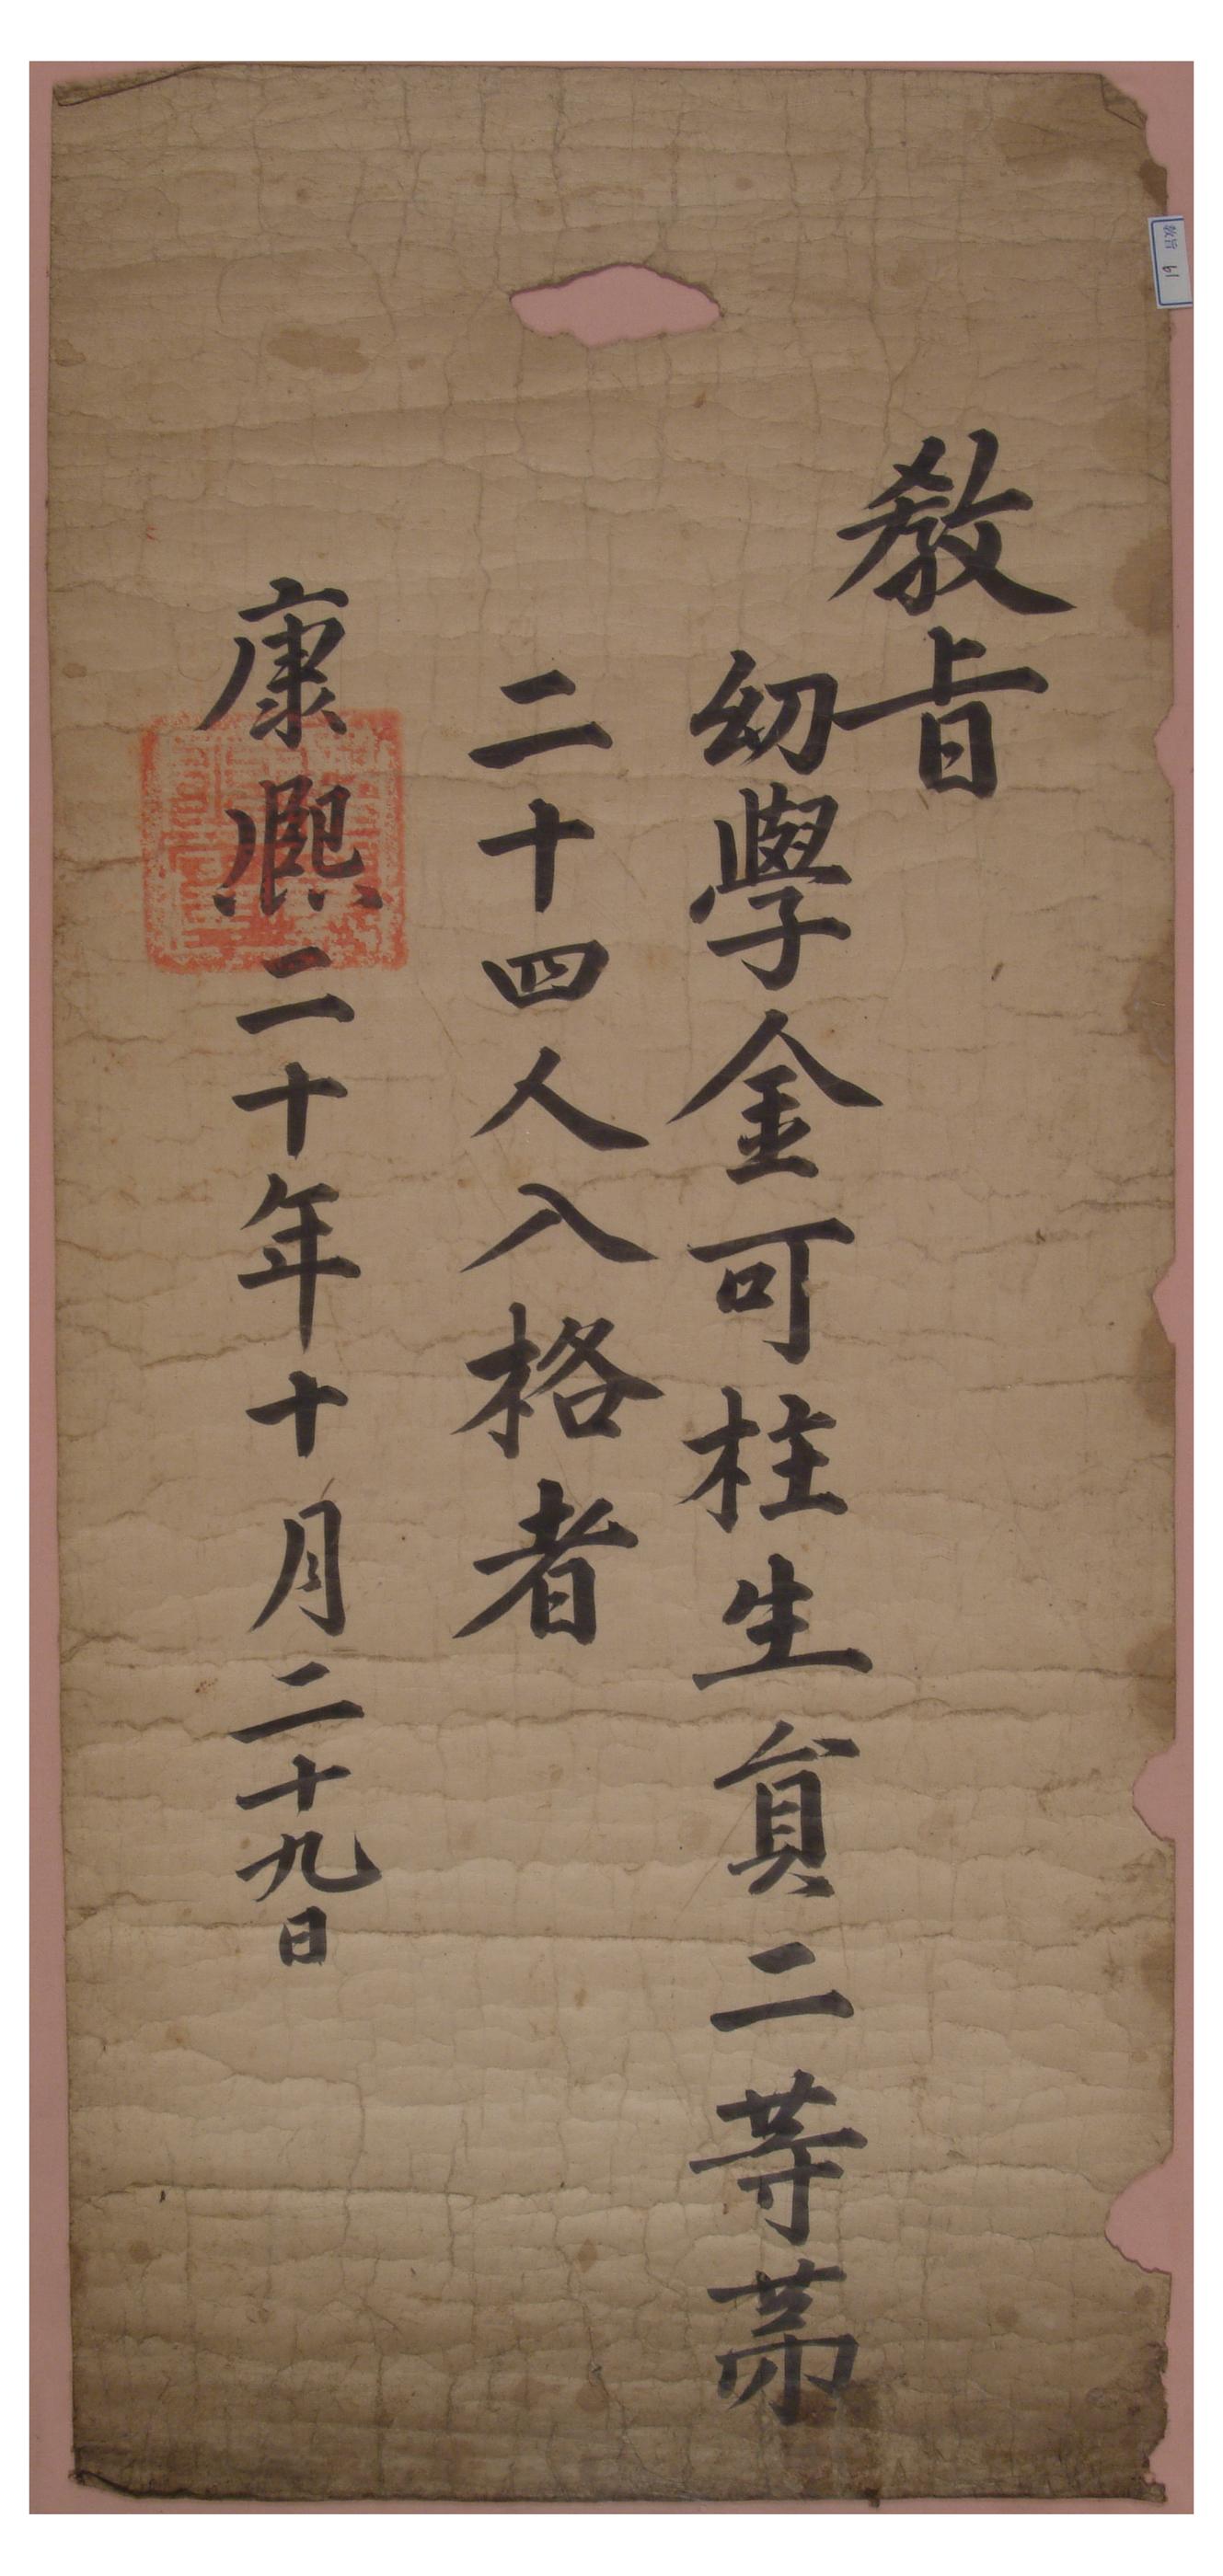 敎旨
幼學金可柱生貟二等苐
二十四人入格者
康熙二十年十月二十九日
敎旨 61